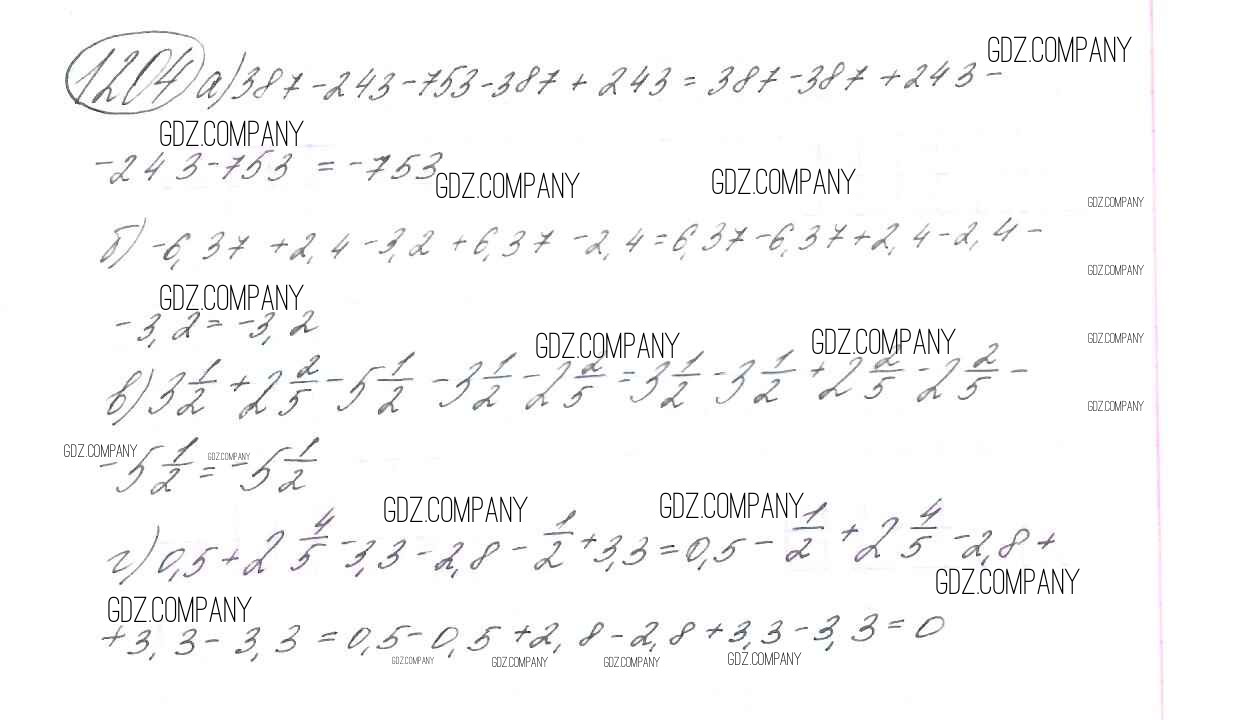 GDZ.COMPANY
1204 а) 387 - 243 - 753 - 387 + 243 = 387 - 387 + 243 -
GDZ.COMPANY
- 243 - 753 = - 753
GDZ.COMPANY GDZ.COMPANY
GDZ.COMPANY
б) - 6,37 + 2,4 - 3,2 + 6,37 - 2,4 = 6,37 - 6,37 + 2,4 - 2,4 -
GDZ.COMPANY
GDZ.COMPANY
- 3,2 = - 3,2
GDZ.COMPANY GDZ.COMPANY GDZ.COMPANY
в) 3 1/2 + 2 2/5 - 5 1/2 - 3 1/2 - 2 2/5 = 3 1/2 - 3 1/2 + 2 2/5 - 2 2/5 -
GDZ.COMPANY
GDZ.COMPANY GDZ.COMPANY
- 5 1/2 = - 5 1/2
GDZ.COMPANY GDZ.COMPANY
г) 0,5 + 2 4/5 - 3,3 - 2,8 - 1/2 + 3,3 = 0,5 - 1/2 + 2 4/5 - 2,8 +
GDZ.COMPANY
GDZ.COMPANY
+ 3,3 - 3,3 = 0,5 - 0,5 + 2,8 - 2,8 + 3,3 - 3,3 = 0
GDZ.COMPANY GDZ.COMPANY GDZ.COMPANY GDZ.COMPANY